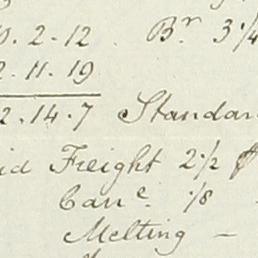 0.2.12 Br 3 1/4
2.11.19
2.14.7 Standar
id Freight 2 1/2 p
Cane 1/8
Melting -